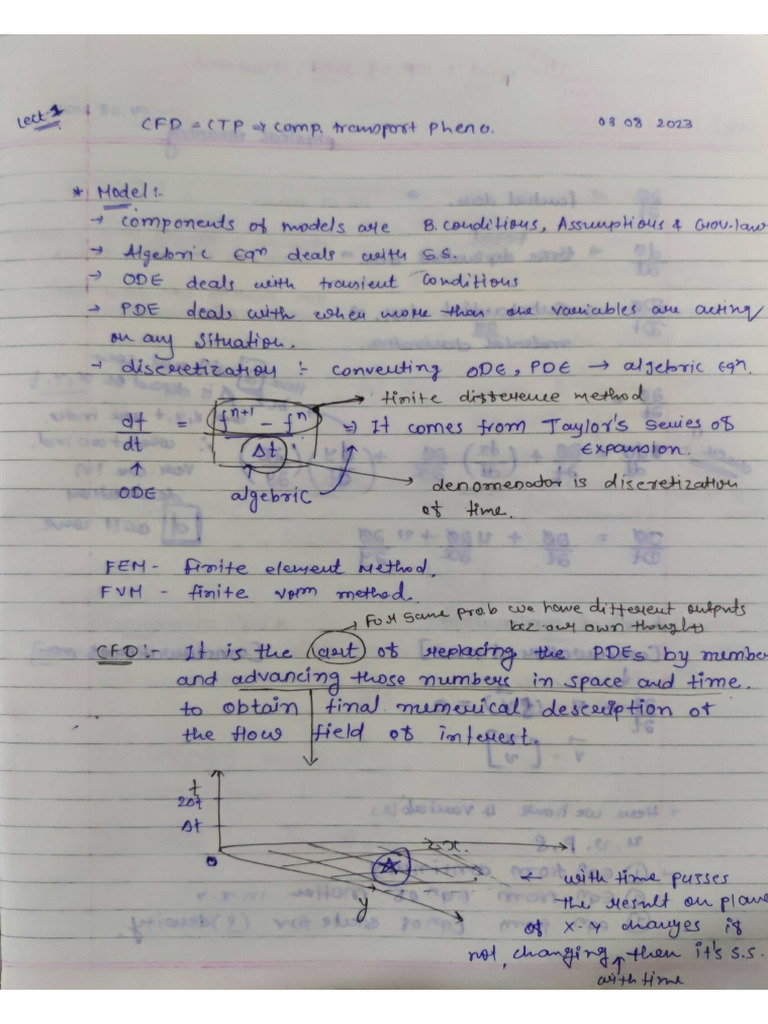 Lect-1
CFD = CTP => comp. transport pheno.
03 08 2023
* Model:-
→ components of models are B.conditions, Assumptions & Gov.law
→ Algebric Eqn deals with S.S.
→ ODE deals with transient conditions
→ PDE deals with when more than one variables are acting
on any situation.
→ discretization :- converting ODE, PDE → algebric Eqn.
finite difference method
df/dt = (f^{n+1} - f^n)/Δt => It comes from Taylor's series of
Expansion.
ODE
algebric
denomenador is discretization
of time.
FEM - finite element Method.
FVM - finite volm method.
For same prob we have different outputs
bcz our own thoughts
CFD:- It is the art of replacing the PDEs by number
and advancing those numbers in space and time.
to obtain final numerical description of
the flow field of interest.
t
2Δt
Δt
0
x
y
← with time passes
the result on plane
of x-y changes if
not changing then it's s.s.
with time